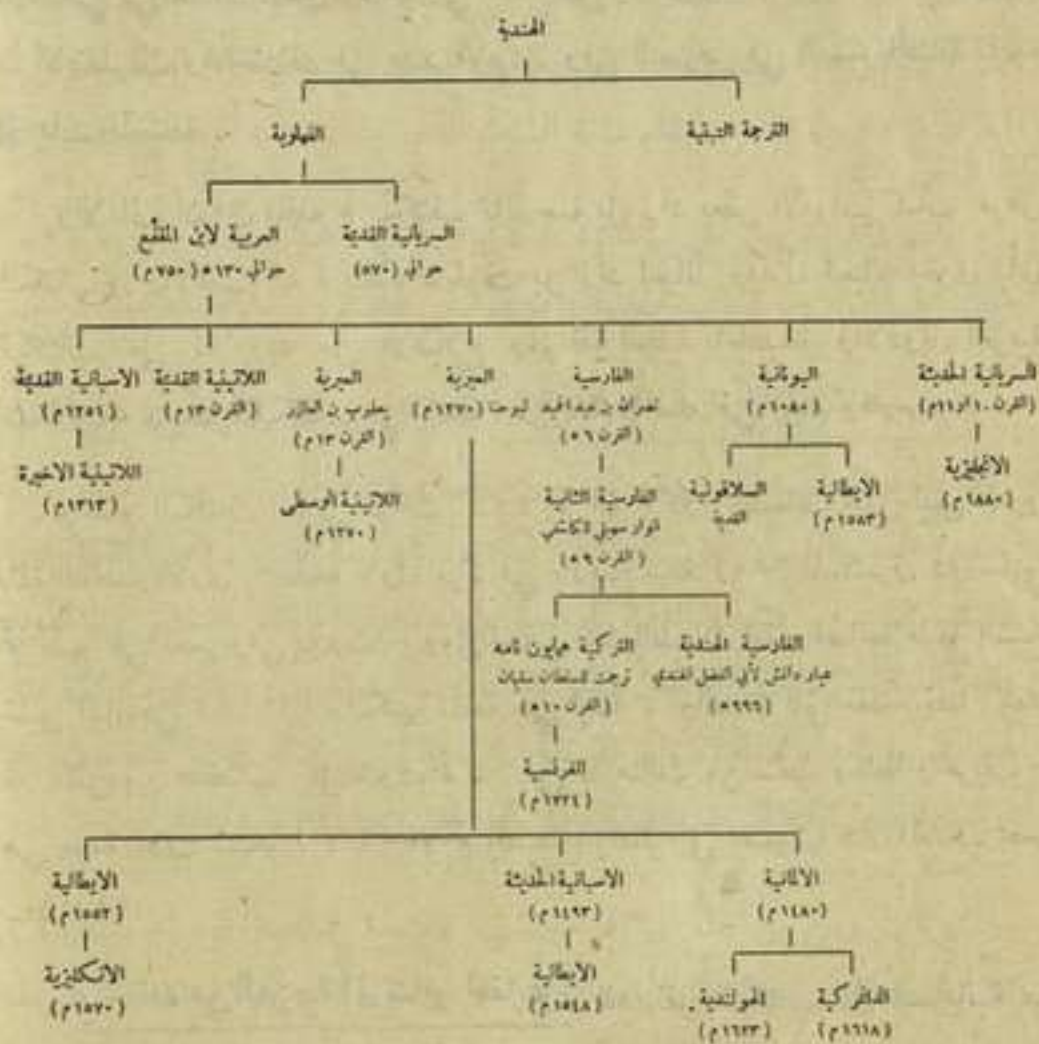 الهندية
الترجمة التبتية
الفهلوية
السريانية القديمة
حوالي (٥٧٠)
العربية لابن المقفّع
حوالي ١٣٠ه (٧٥٠م)
السريانية الحديثة
(القرن ١٠ او ١١م)
الانجليزية
(١٨٨٠م)
اليونانية
(١٠٨٠م)
الايطالية
(١٥٨٣م)
السلافونية
القديمة
الفارسية
لنصرالله بن عبد الحميد
(القرن ٦ه)
الفارسية الثانية
انوار سهيلي للكاشفي
(القرن ٩ه)
الفارسية الهندية
عيار دانش لأبي الفضل الهندي
(٩٩٦ه)
التركية همايون نامه
ترجمت للسلطان سليمان
(القرن ١٠ه)
الفرنسية
(١٧٢٤م)
العبرية
ليوحنا (١٢٧٠م)
العبرية
يعقوب بن العازر
(القرن ١٣م)
اللاتينية الوسطى
(١٢٧٠م)
اللاتينية القديمة
(القرن ١٣م)
الاسبانية القديمة
(١٢٥١م)
اللاتينية الاخيرة
(١٣١٣م)
الالمانية
(١٤٨٠م)
الدانمركية
(١٦١٨م)
الهولندية
(١٦٢٣م)
الاسبانية الحديثة
(١٤٩٣م)
الايطالية
(١٥٤٨م)
الايطالية
(١٥٥٢م)
الانكليزية
(١٥٧٠م)